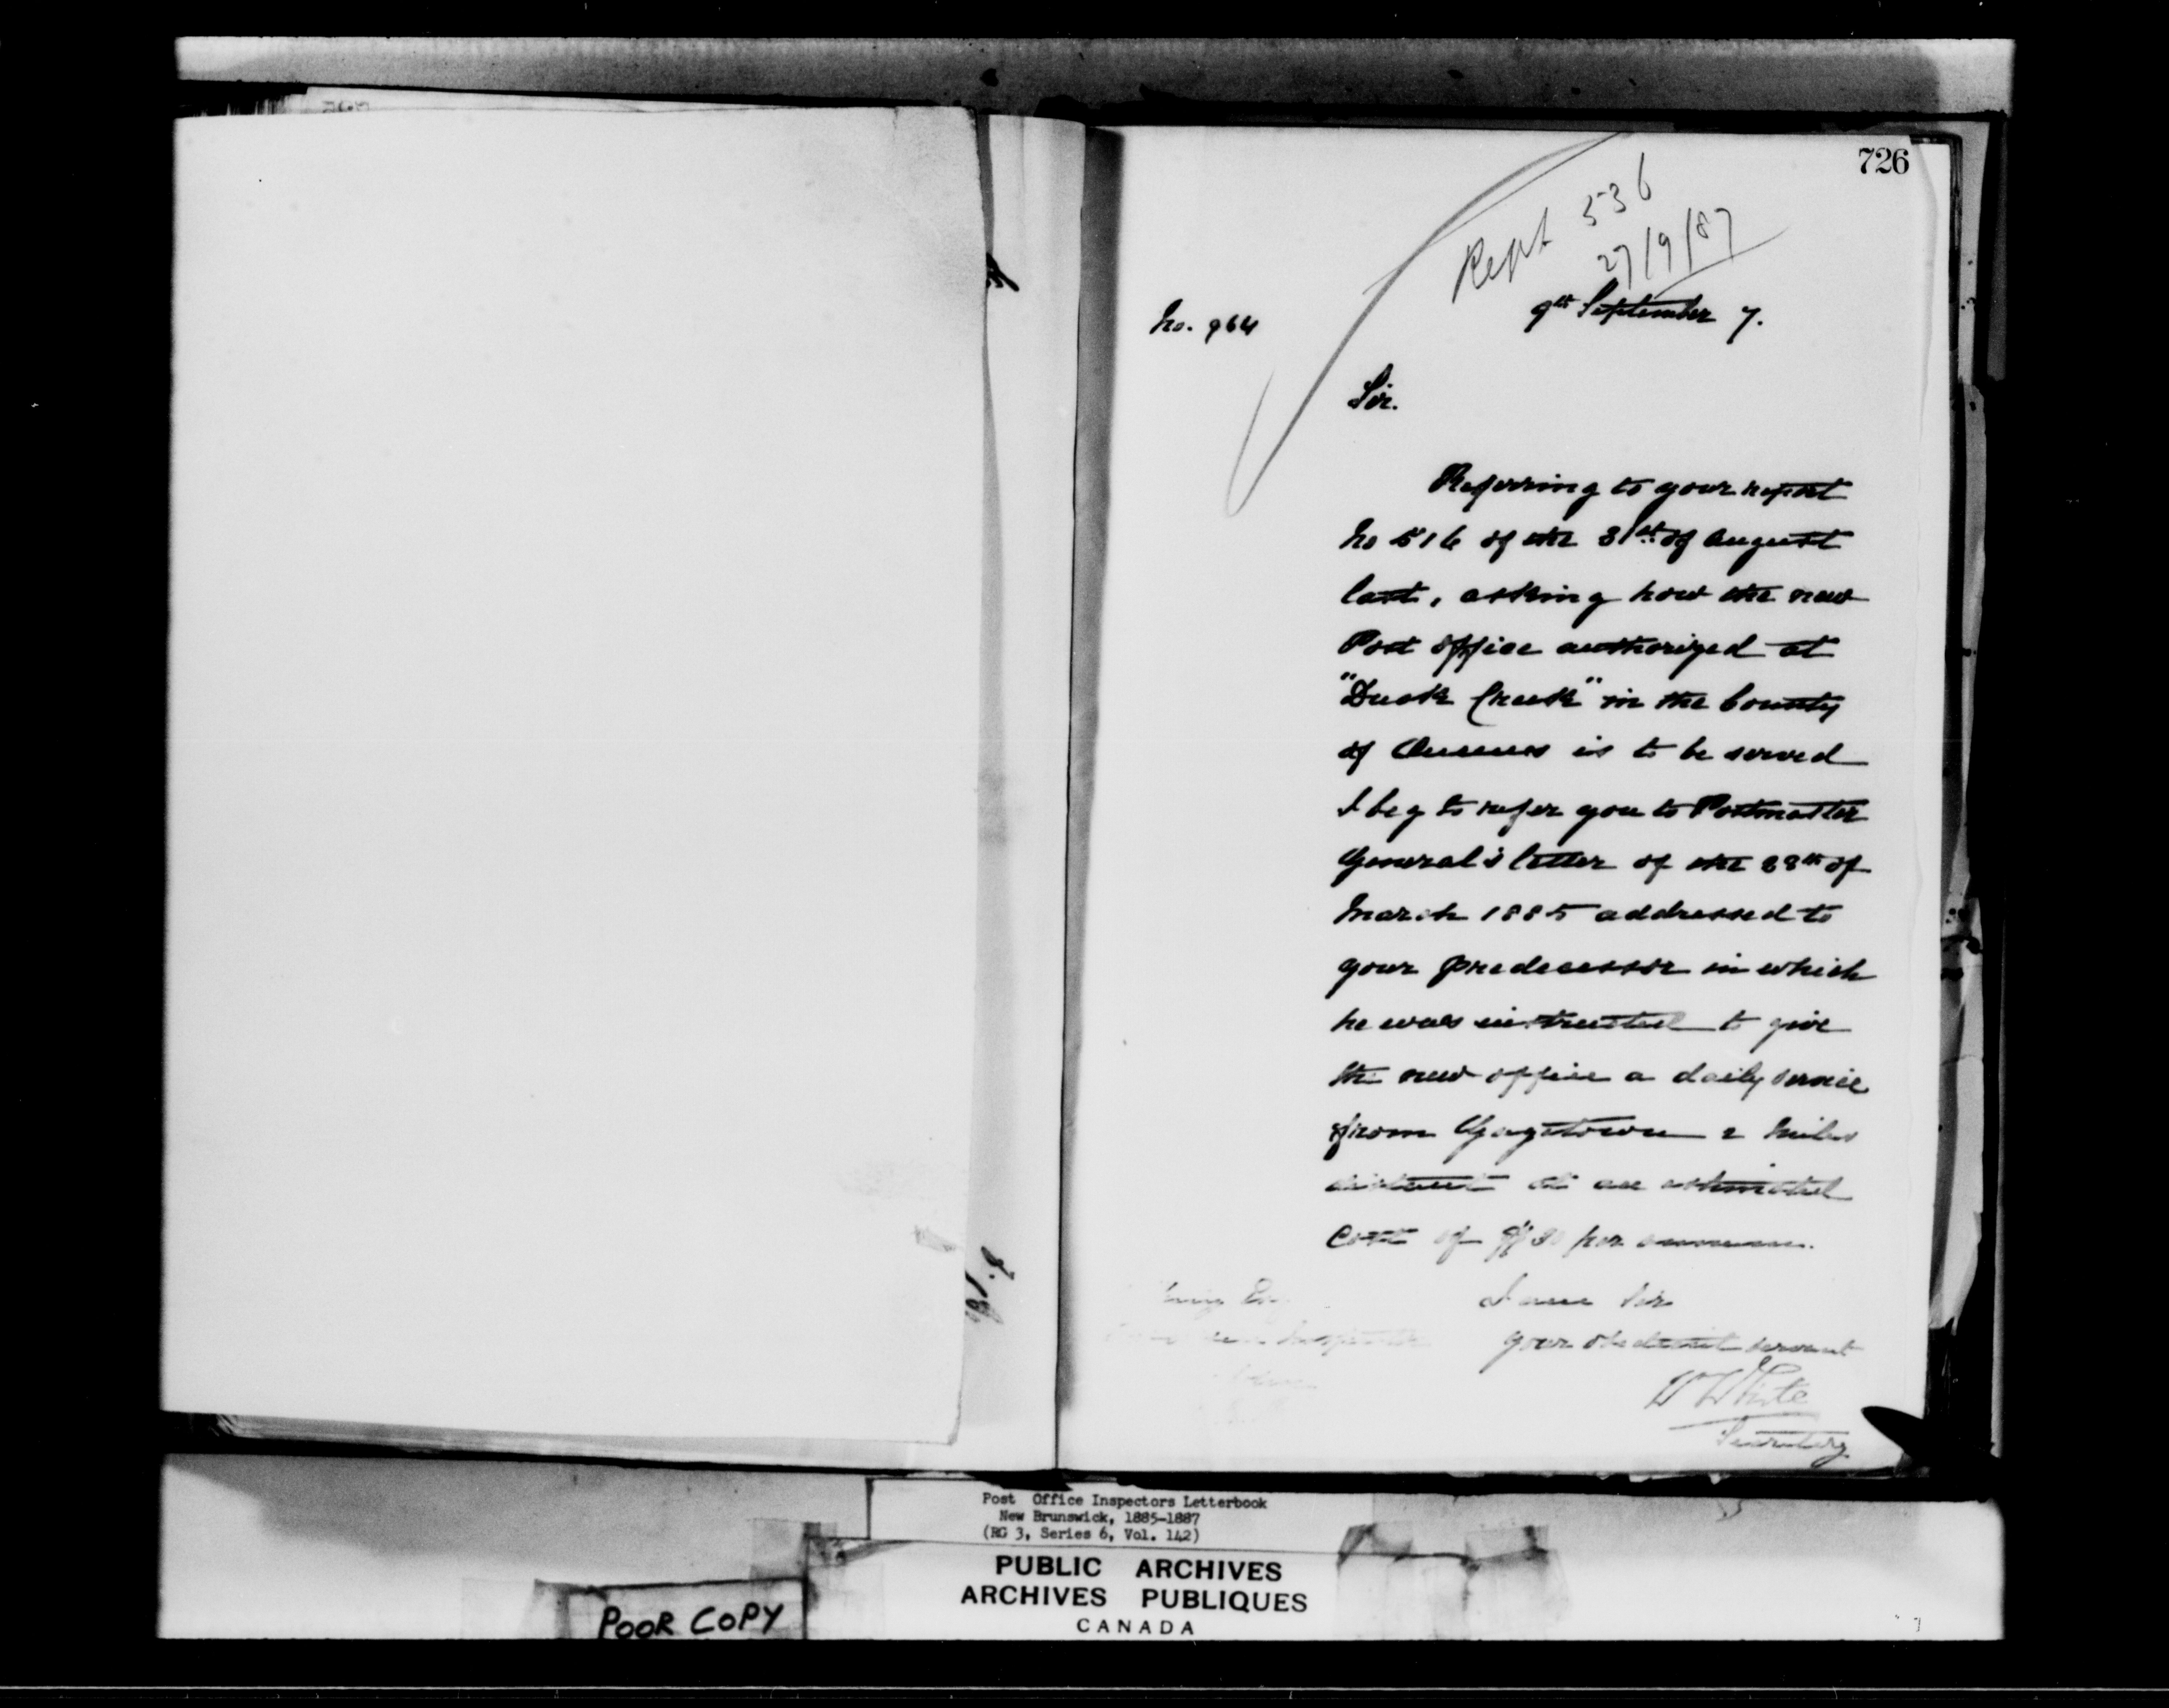 726
Rept 536
27/9/87
No. 964
9th September 7.
Sir.
Referring to your report
No 516 of the 31st of August
last, asking how the new
Post office authorized at
"Duck Creek" in the County
of Queens is to be served
I beg to refer you to Postmaster
General's letter of the 28th of
March 1885 addressed to
your predecessor in which
he was instructed to give
the new office a daily service
from Gagetown 2 miles
distant at an estimated
Cost of $30 per annum.
I am Sir
your obedient servant
W White
Secretary
Post Office Inspectors Letterbook
New Brunswick, 1885-1887
(RG 3, Series 6, Vol. 142)
PUBLIC ARCHIVES
ARCHIVES PUBLIQUES
CANADA
POOR COPY